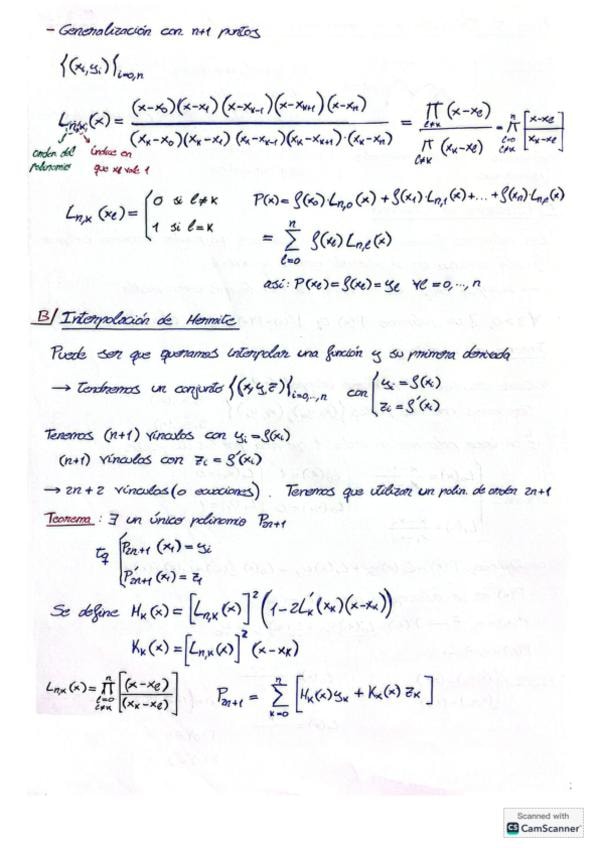 - Generalización con n+1 puntos
{(xi, yi)}i=0,n
Ln,k(x) = (x-x0)(x-x1)(x-xk-1)(x-xk+1)(x-xn) / (xk-x0)(xk-x1)(xk-xk-1)(xk-xk+1)·(xk-xn) = ∏l≠k (x-xl) / ∏l≠k (xk-xl) = ∏l=0 l≠k n [x-xl / xk-xl]
orden del polinomio
índice en que xl vale 1
Ln,k(xl) = { 0 si l≠k
1 si l=k
P(x) = f(x0)·Ln,0(x) + f(x1)·Ln,1(x) + ... + f(xn)·Ln,l(x)
= ∑l=0 n f(xl) Ln,l(x)
así: P(xl) = f(xl) = yl ∀l = 0,..., n
B/ Interpolación de Hermite
Puede ser que queramos interpolar una función y su primera derivada
→ Tendremos un conjunto {(x,y,z)}i=0,..,n con { yi = f(xi)
zi = f'(xi)
Tenemos (n+1) vínculos con yi = f(xi)
(n+1) vínculos con zi = f'(xi)
→ 2n+2 vínculos (o ecuaciones). Tenemos que utilizar un polin. de orden 2n+1
Teorema: ∃ un único polinomio P2n+1
tq { P2n+1(xi) = yi
P'2n+1(xi) = zi
Se define Hk(x) = [Ln,k(x)]² (1-2L'k(xk)(x-xk))
Kk(x) = [Ln,k(x)]² (x-xk)
Ln,k(x) = ∏l=0 l≠k n [(x-xl) / (xk-xl)]
P2n+1 = ∑k=0 n [Hk(x) yk + Kk(x) zk]
Scanned with
CS CamScanner